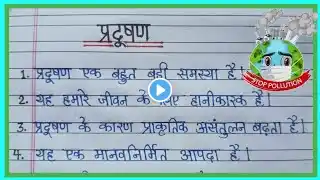 प्रदूषण
STOP POLLUTION
1. प्रदूषण एक बहुत बड़ी समस्या है।
2. यह हमारे जीवन के लिए हानीकारक है।
3. प्रदूषण के कारण प्राकृतिक असंतुलन बढ़ता है।
4. यह एक मानवनिर्मित आपदा है।